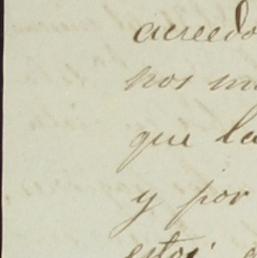 acreedo
nos m
que la
y por
estoi